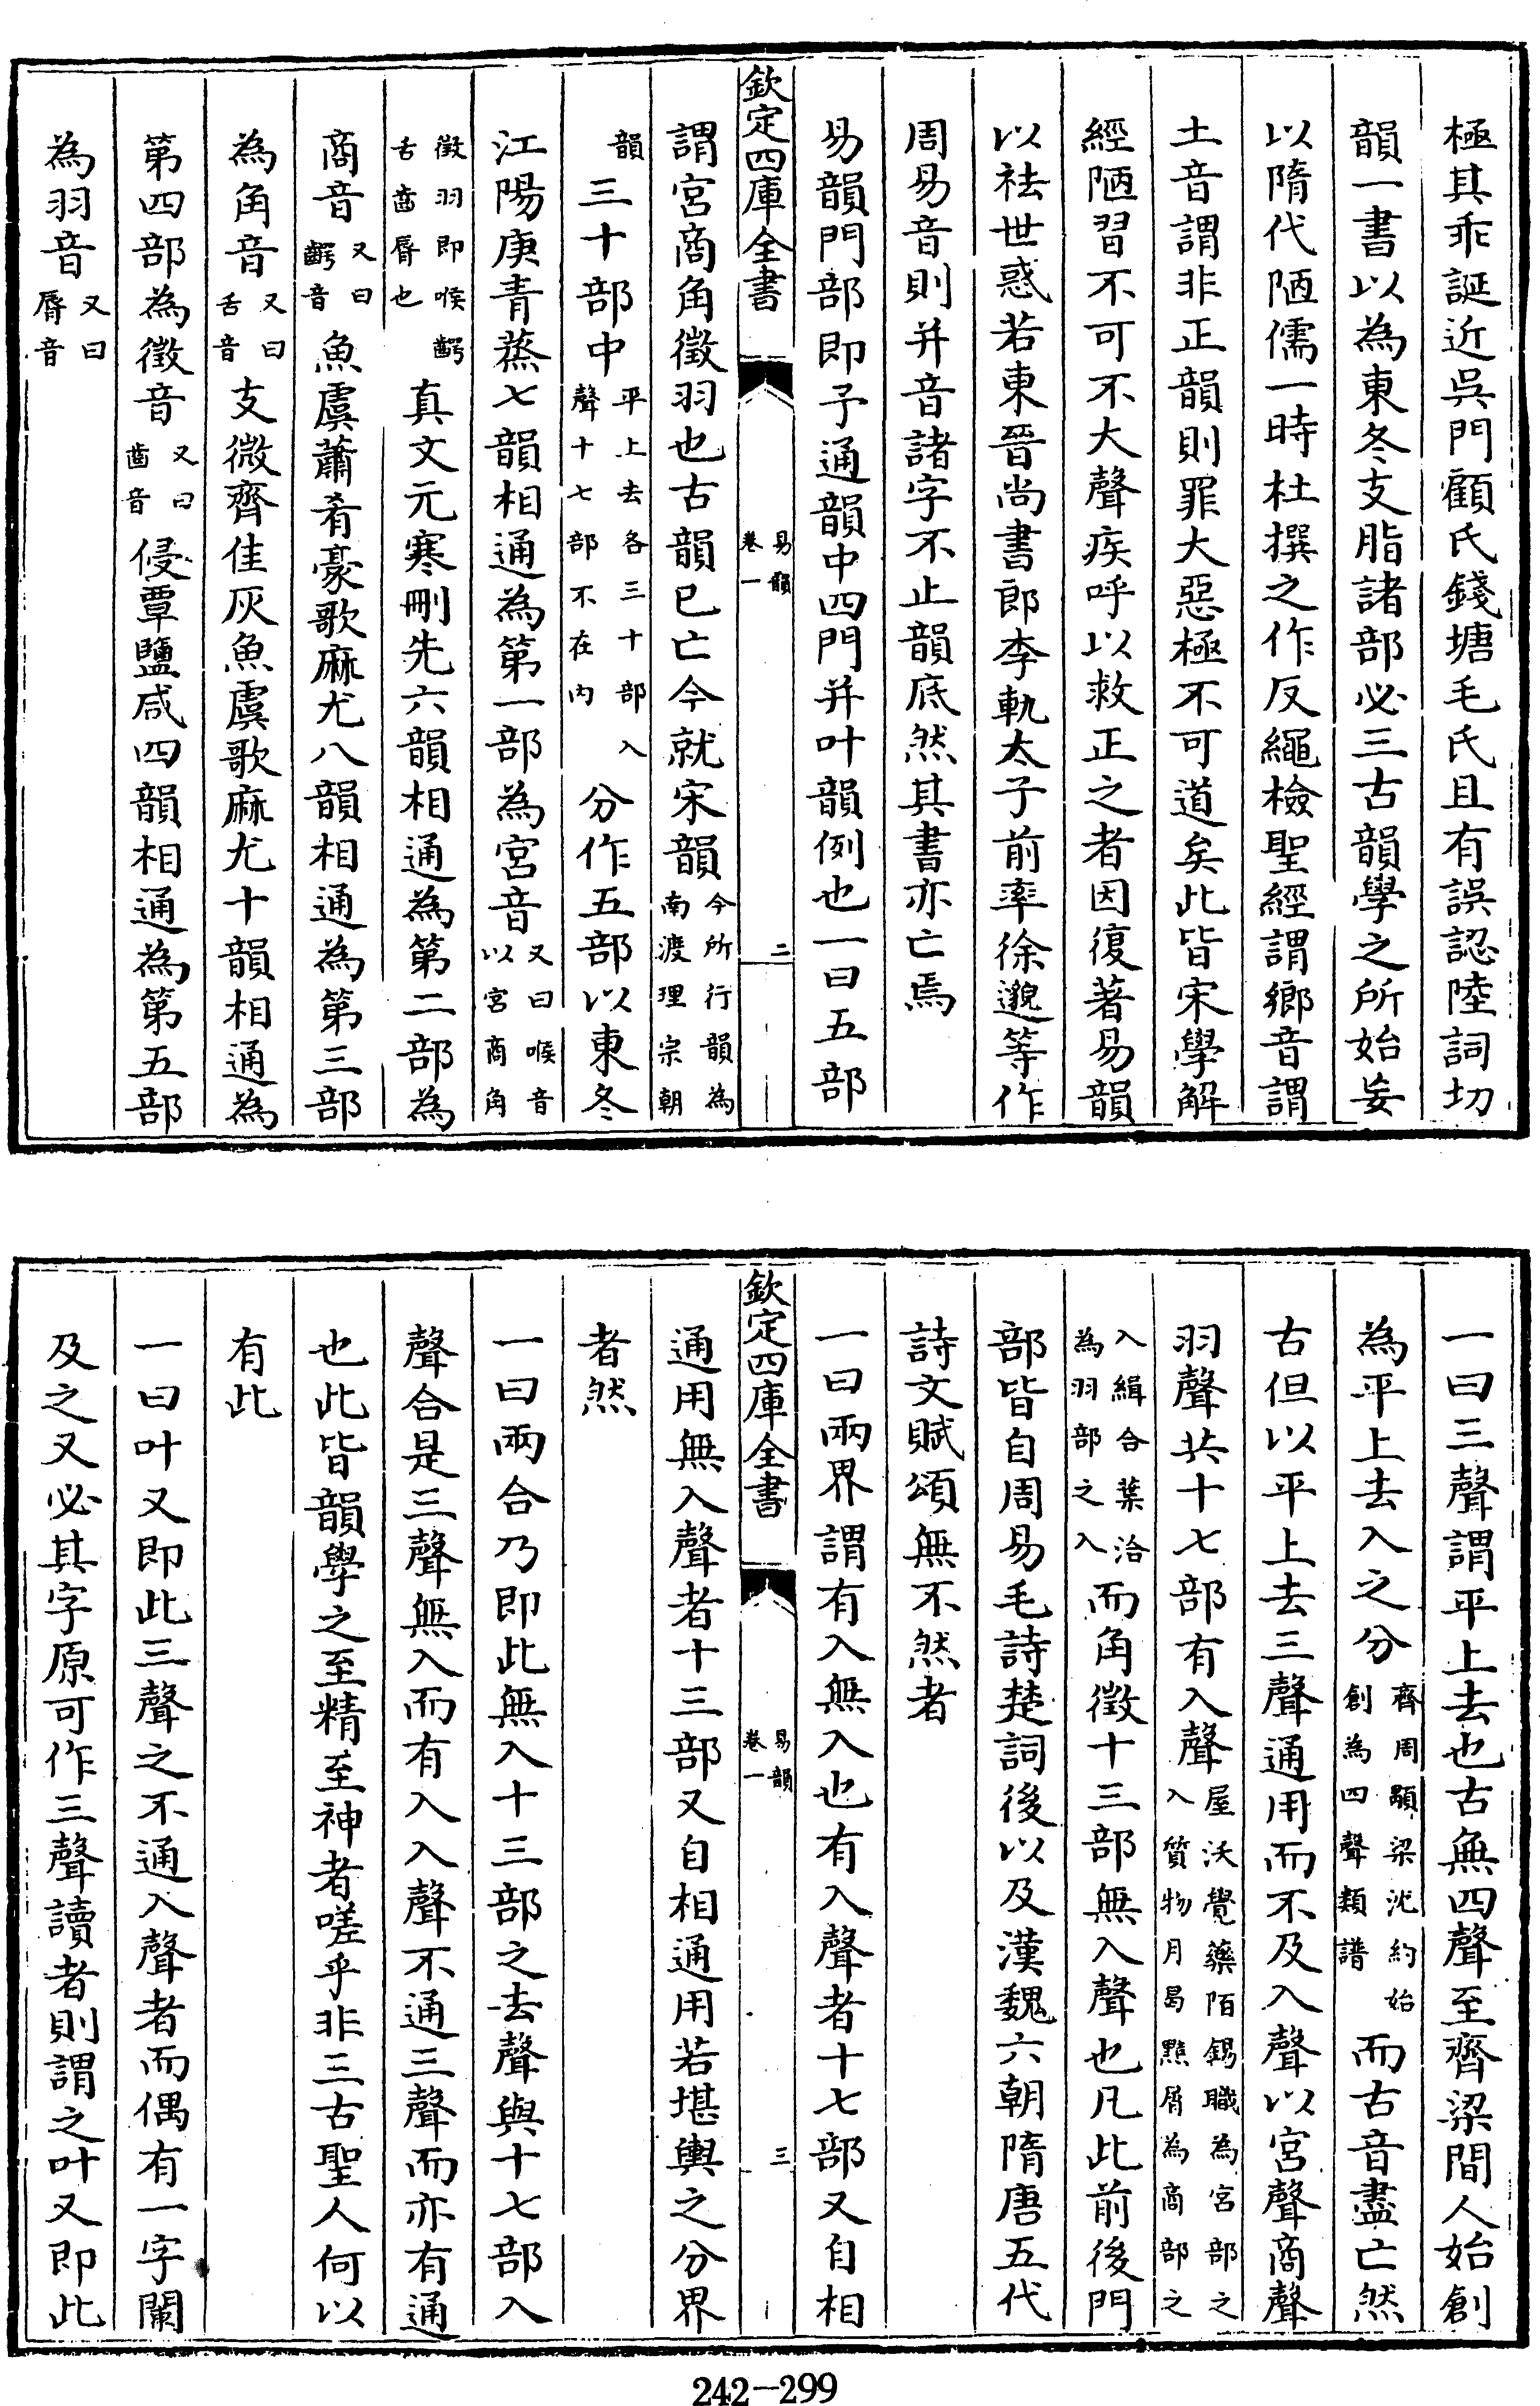 極其乖誕近吳門顧氏錢塘毛氏且有誤認陸詞切
韻一書以為東冬支脂諸部必三古韻學之所始妄
以隋代陋儒一時杜撰之作反繩檢聖經謂鄉音謂
土音謂非正韻則罪大惡極不可道矣此皆宋學解
經陋習不可不大聲疾呼以救正之者因復著易韻
以祛世惑若東晉尚書郎李軌太子前率徐邈等作
周易音則并音諸字不止韻底然其書亦亡焉
易韻門部即予通韻中四門并叶韻例也一曰五部
欽定四庫全書
易韻
卷一
二
謂宮商角徵羽也古韻已亡今就宋韻今所行韻為南渡理宗朝
韻三十部中平上去各三十部入聲十七部不在內分作五部以東冬
江陽庚青蒸七韻相通為第一部為宮音又曰喉音以宮商角
徵羽即喉齶舌齒脣也真文元寒刪先六韻相通為第二部為
商音又曰齶音魚虞蕭肴豪歌麻尤八韻相通為第三部
為角音又曰舌音支微齊佳灰魚虞歌麻尤十韻相通為
第四部為徵音又曰齒音侵覃鹽咸四韻相通為第五部
為羽音又曰脣音
一曰三聲謂平上去也古無四聲至齊梁間人始創
為平上去入之分齊周顒梁沈約始創為四聲類譜而古音盡亡然
古但以平上去三聲通用而不及入聲以宮聲商聲
羽聲共十七部有入聲屋沃覺藥陌錫職為宮部之入質物月曷黠屑為商部之
入緝合葉洽為羽部之入而角徵十三部無入聲也凡此前後門
部皆自周易毛詩楚詞後以及漢魏六朝隋唐五代
詩文賦頌無不然者
一曰兩界謂有入無入也有入聲者十七部又自相
欽定四庫全書
易韻
卷一
三
通用無入聲者十三部又自相通用若堪輿之分界
者然
一曰兩合乃即此無入十三部之去聲與十七部入
聲合是三聲無入而有入入聲不通三聲而亦有通
也此皆韻學之至精至神者嗟乎非三古聖人何以
有此
一曰叶又即此三聲之不通入聲者而偶有一字闌
及之又必其字原可作三聲讀者則謂之叶又即此
242-299